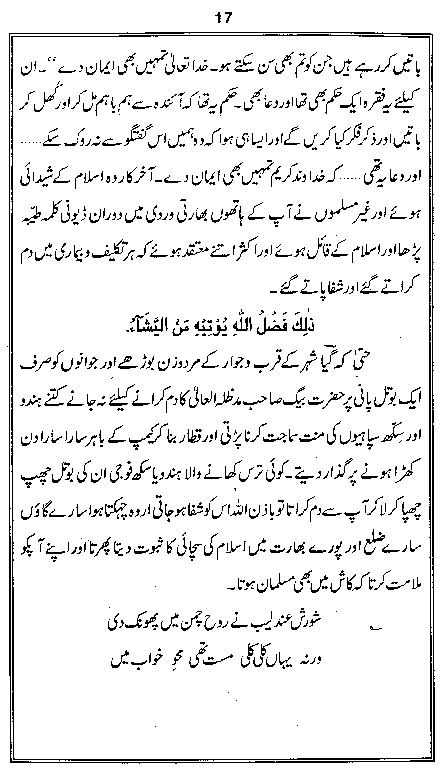 17
باتیں کر رہے ہیں جن کو تم بھی سن سکتے ہو۔ خدا تعالیٰ تمہیں بھی ایمان دے‘‘۔ ان
کیلئے یہ فقرہ ایک حکم بھی تھا اور دعا بھی۔ حکم یہ تھا کہ آئندہ سے ہم باہم مل کر اور کُھل کر
باتیں اور ذکر فکر کیا کریں گے اور ایسا ہی ہوا کہ وہ ہمیں اس گفتگو سے نہ روک سکے ......
اور دعا یہ تھی ...... کہ خداوند کریم تمہیں بھی ایمان دے۔ آخر کار وہ اسلام کے شیدائی
ہوئے اور غیر مسلموں نے آپ کے ہاتھوں بھارتی وردی میں دوران ڈیوٹی کلمہ طیّبہ
پڑھا اور اسلام کے قائل ہوئے اور اکثر اتنے معتقد ہوئے کہ ہر تکلیف و بیماری میں دم
کراتے گئے اور شفا پاتے گئے۔
ذٰلِكَ فَضْلُ اللّٰهِ يُوْتِيْهِ مَنْ الْيَّشَآءُ
حتیٰ کہ گیا شہر کے قرب و جوار کے مرد وزن بوڑھے اور جوانوں کو صرف
ایک بوتل پانی پر حضرت بیگ صاحب مدظلہ العالیٰ کا دم کرانے کیلئے نہ جانے کتنے ہندو
اور سکھ سپاہیوں کی منت سماجت کرنا پڑتی اور قطار بنا کر کیمپ کے باہر سارا سارا دن
کھڑا ہونے پر گذار دیتے۔ کوئی ترس کھانے والا ہندو یا سکھ فوجی ان کی بوتل چھپ
چھپا کر لا کر آپ سے دم کراتا تو باذن اللہ اس کو شفا ہو جاتی اروہ چہکتا ہوا سارے گاؤں
سارے ضلع اور پورے بھارت میں اسلام کی سچائی کا ثبوت دیتا پھرتا اور اپنے آپکو
ملامت کرتا کہ کاش میں بھی مسلمان ہوتا۔
شورش عندلیب نے روح چمن میں پھونک دی
ورنہ یہاں کلی کلی مست تھی محوِ خواب میں